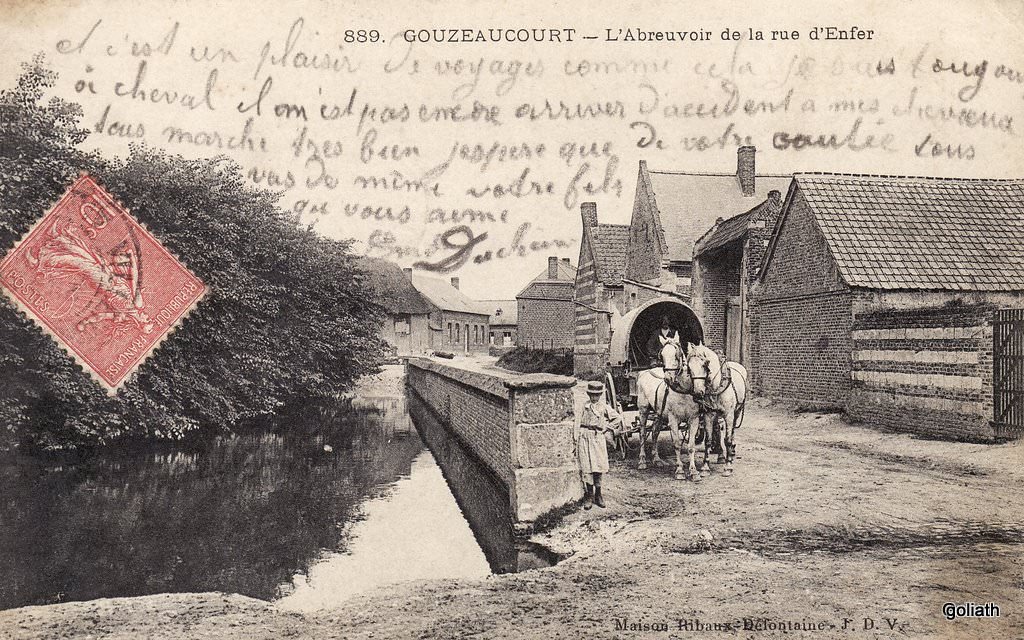 889. GOUZEAUCOURT – L'Abreuvoir de la rue d'Enfer
et c'est un plaisir de voyages comme cela je suis tougour
à cheval il m'est pas encore arriver d'accident a mes cheveux
tous marche tres bien jespere que de votre coutée tous
vas de même votre fils
qu vous aime
Duchein
05
POSTES
REPUBLIQUE FRANÇAISE
Maison Ribaux-Delontaine - J. D. V.
goliath